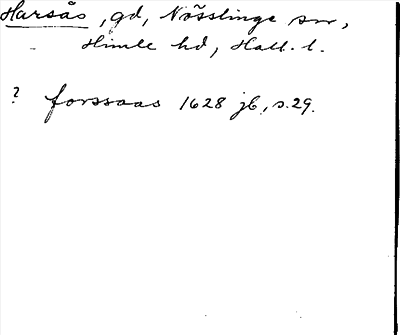 Harsås, gd, Nösslinge sn,
Himle hd, Hall. l.
? forssaas 1628 jb, s. 29.